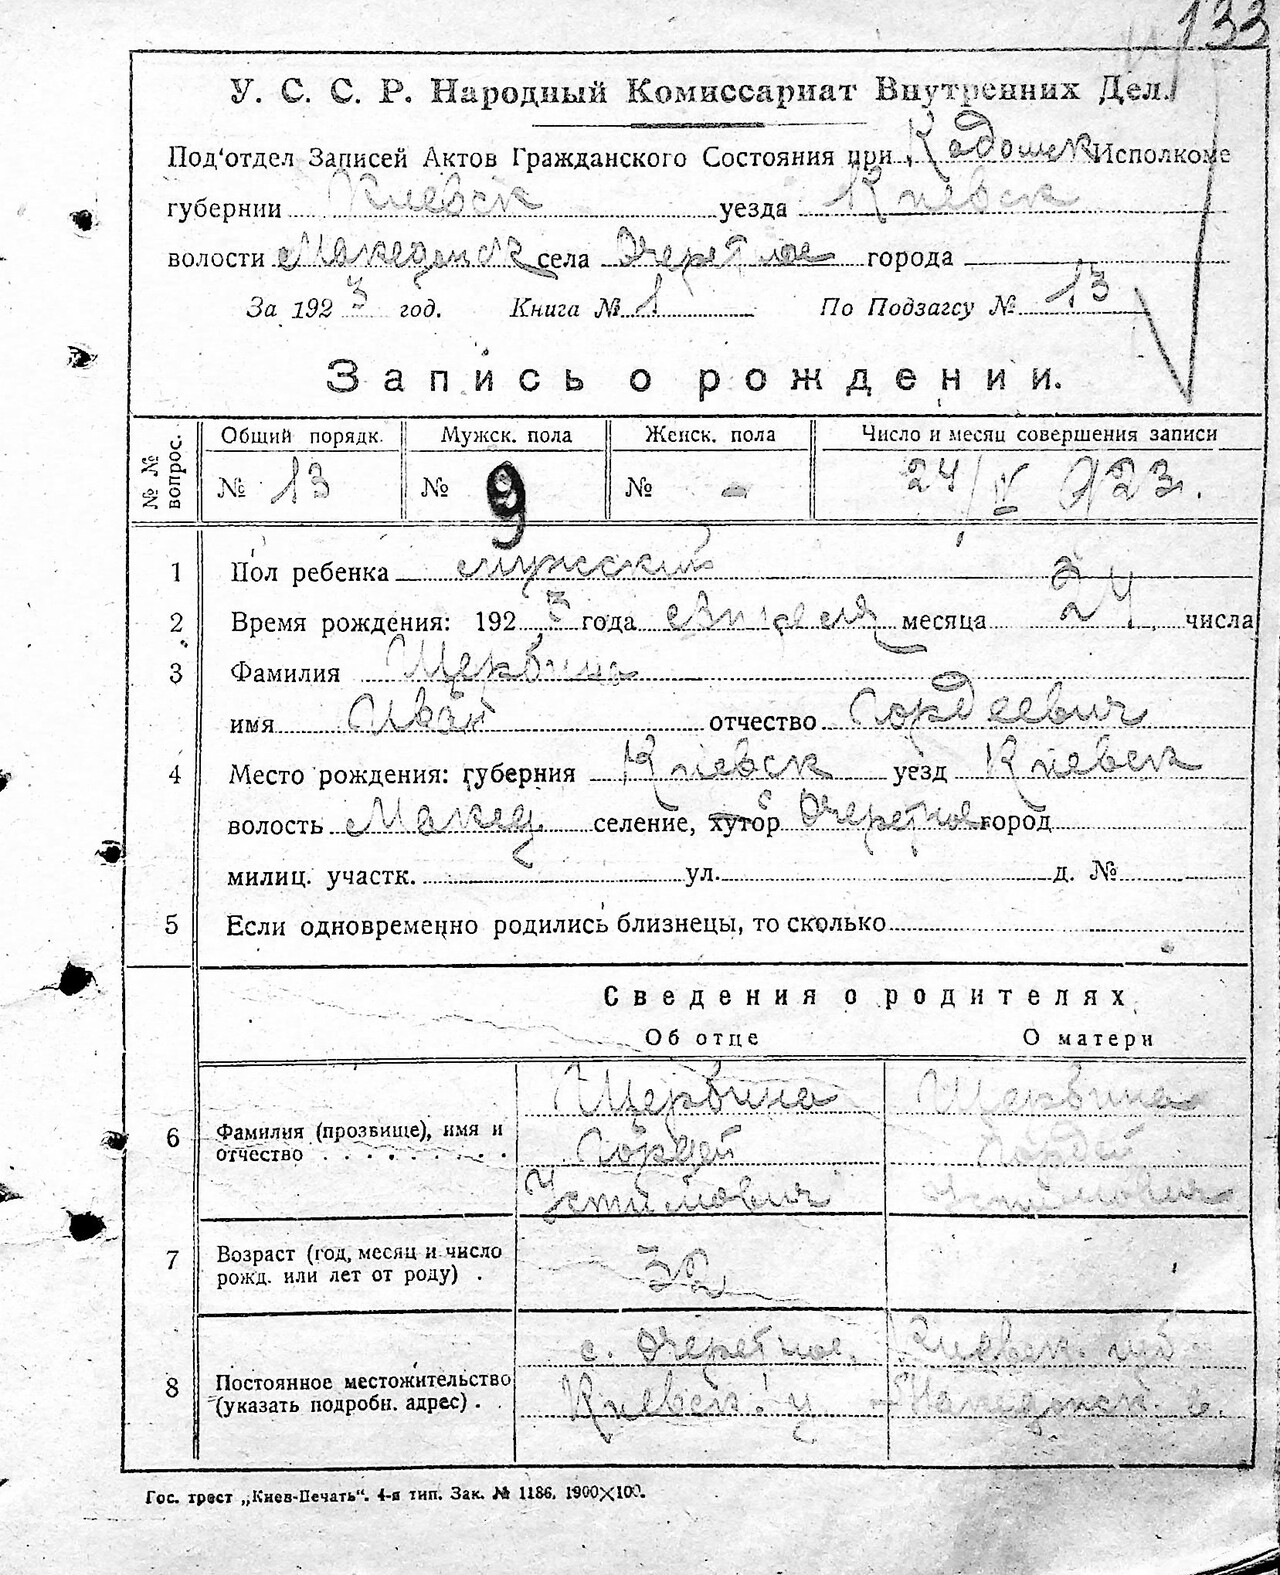 133
У. С. С. Р. Народный Комиссариат Внутренних Дел.
Под'отдел Записей Актов Гражданского Состояния при Кодошек Исполкоме
губернии Киевск уезда Киевск
волости Македонск села Очеретное города
За 1923 год. Книга № 1 По Подзагсу № 13
Запись о рождении.
№ № вопрос. Общий порядк. Мужск. пола Женск. пола Число и месяц совершения записи
№ 13 № 9 № - 24/IV 923.
1 Пол ребенка мужский
2 Время рождения: 1923 года Апреля месяца 24 числа
3 Фамилия Щербина
имя Иван отчество Гордеевич
4 Место рождения: губерния Киевск уезд Киевск
волость Макед селение, хутор с Очеретное город
милиц. участк. ул. д. №
5 Если одновременно родились близнецы, то сколько
Сведения о родителях
Об отце О матери
6 Фамилия (прозвище), имя и отчество
Щербина Щербина
Гордей Гордей
Устимович Устимович
7 Возраст (год, месяц и число рожд. или лет от роду) . 32
8 Постоянное местожительство (указать подробн. адрес) .
с. Очеретное, Киевск. губ
Киевск. у. Македонск. в.
Гос. трест „Киев-Печать“. 4-я тип. Зак. № 1186. 1900×100.